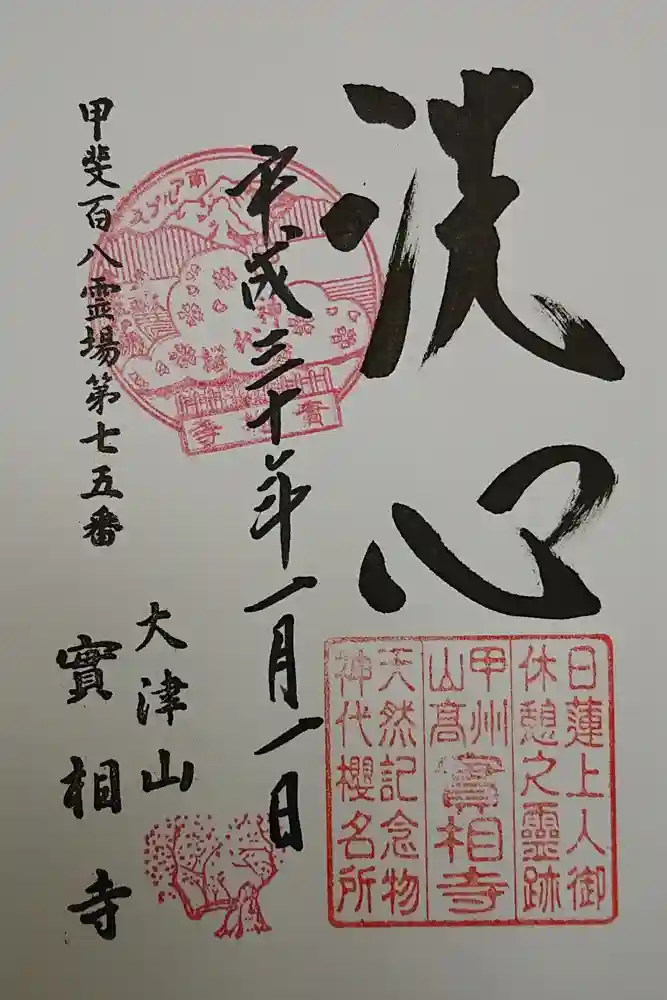 洗心
平成三十年一月一日
甲斐百八霊場第七五番
大津山
實相寺
南アルプス
神代桜
實相寺
日蓮上人御
休憩之靈跡
甲州
山髙
實相寺
天然記念物
神代櫻名所